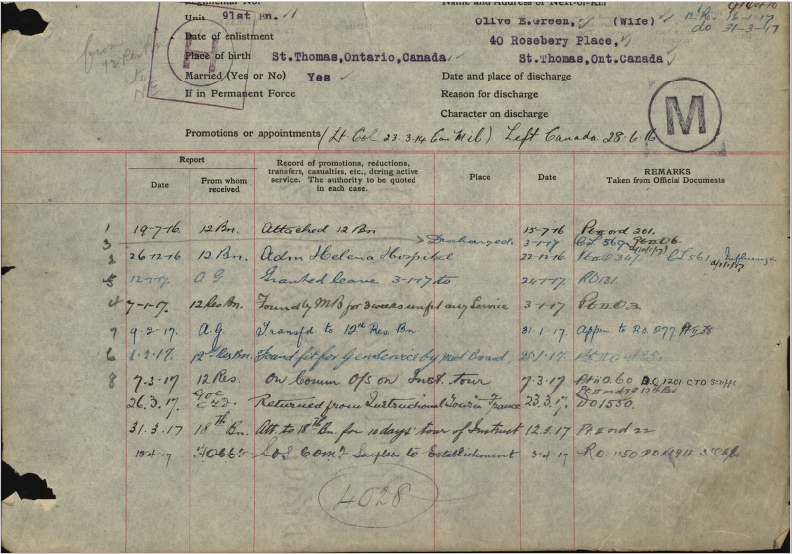 Unit 91st Bn.
Olive E. Green, (Wife)
16-1-17
do 31-3-17
Date of enlistment
40 Rosebery Place,
Place of birth St.Thomas,Ontario,Canada
St.Thomas,Ont.Canada
H
Married (Yes or No) Yes
Date and place of discharge
If in Permanent Force
Reason for discharge
Character on discharge
M
Promotions or appointments (Lt Col 23.3.14 Can Mil) Left Canada 28-6-16
Report
Date
From whom received
Record of promotions, reductions, transfers, casualties, etc., during active service. The authority to be quoted in each case.
Place
Date
REMARKS
Taken from Official Documents
1 19-7-16. 12 Bn. Attached 12 Bn 15-7-16 Pt II ord 201.
3 Discharged 3-1-17 CL 569
2 26-12-16 12 Bn. Adm Helena Hospital 22-12-16 CL 561 Influenza
5 12-1-17. A.G. Granted leave 3-1-17 to 24-1-17. RO 131.
4 7-1-17. 12 Res Bn. Found by MB for 3 weeks unfit any Service 3-1-17 Pt II O 3.
7 9-2-17. A.G. Transfd to 12th Res. Bn 31.1.17. Appen to RO. 277 Pt II 38
6 1-2-17. 12th Res Bn. Found fit for Gen Service by med Board 25-1-17.
8 7-3-17 12 Res. On Comm O/S on Inst. tour 7-3-17 Pt II O.60 B.O 1201 CTD
26.3.17. GOC Returned from Instructional Tour France 23.3.17. DO 1550.
31.3.17 18th Bn. Att. to 18th Bn. for 10 days' tour of Instruct 12.3.17 Pt II ord 22
SOS Comm. Surplus to Establishment 3-4-17 RO. 1150
4028